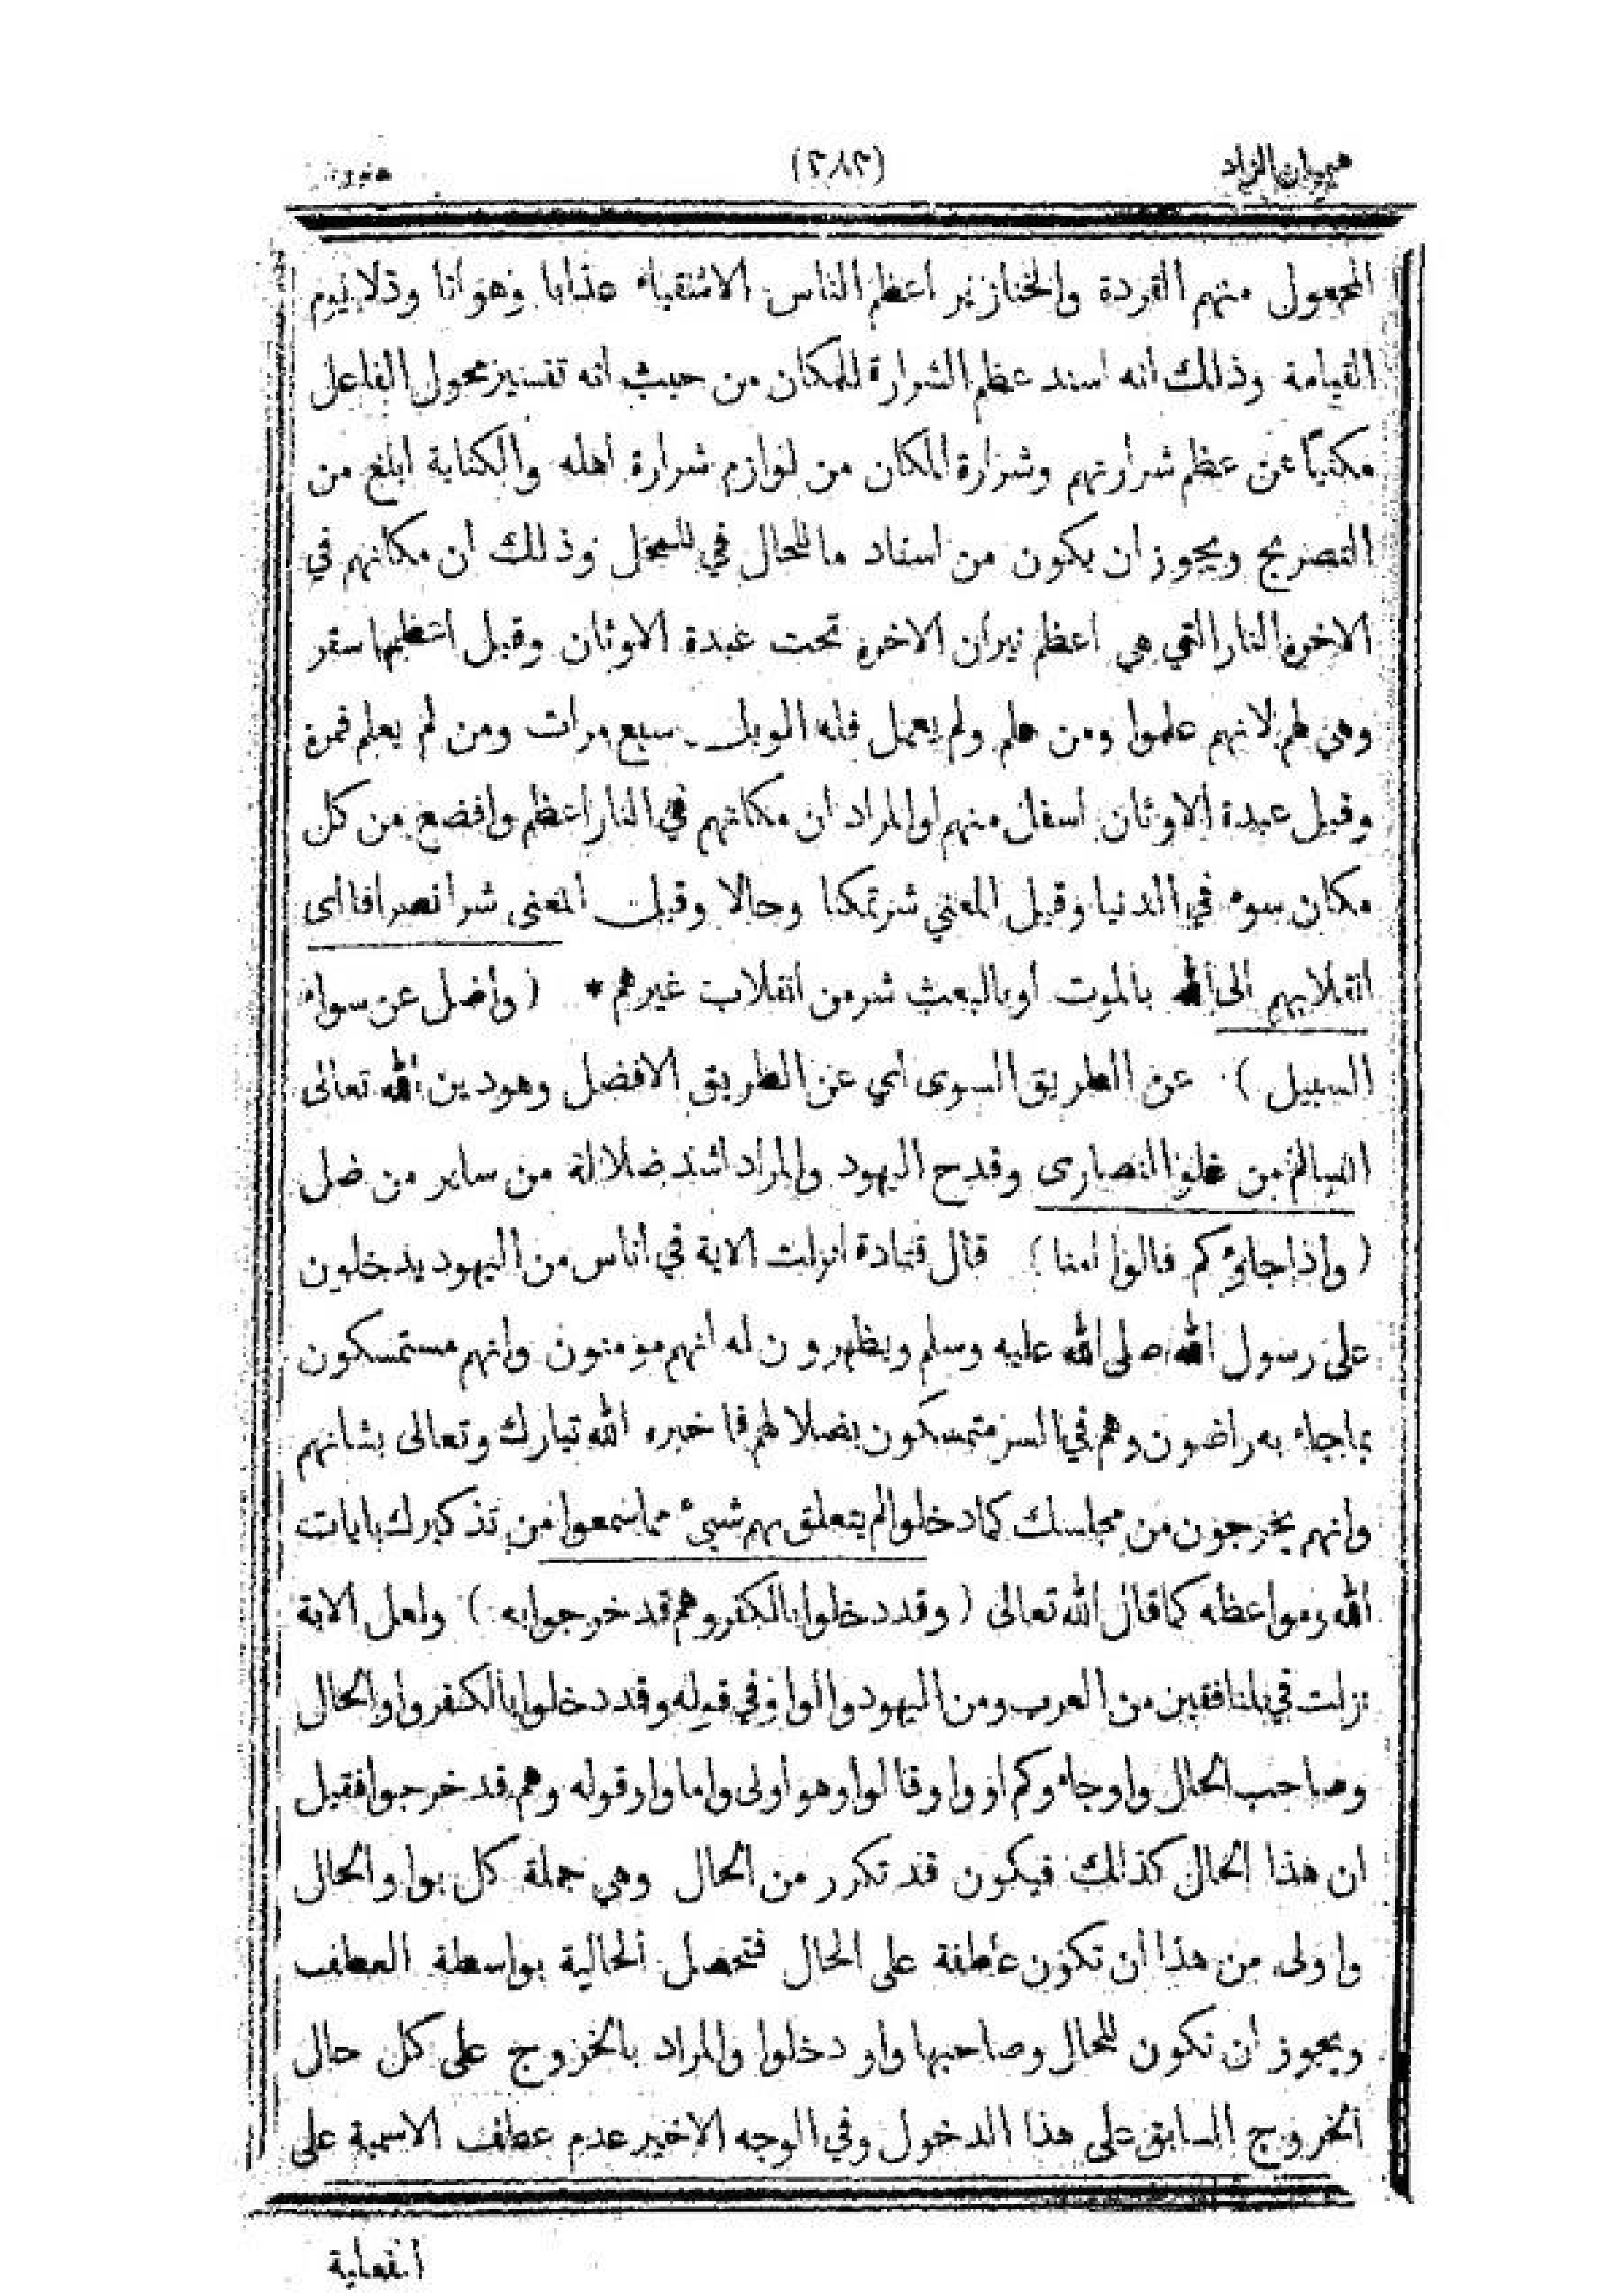 هميان الزاد (٣٨٣)
المجعول منهم القردة والخنازير اعظم الناس الاشقياء عذابا وهوانا وذلا يوم
القيامة وذلك انه اسند عظم الشرارة للمكان من حيث انه تفسير محول الفاعل
مكنيا عن عظم شرارتهم وشرارة المكان من لوازم شرارة اهله والكناية ابلغ من
التصريح ويجوز ان يكون من اسناد ما للحال في للمحل وذلك ان مكانهم في
الاخرة النار التي هي اعظم نيران الاخرة تحت عبدة الاوثان وقيل اعظمها سقر
وهي لهم لانهم علموا ومن علم ولم يعمل فله الويل سبع مرات ومن لم يعلم فمرة
وقيل عبدة الاوثان اسفل منهم او المراد ان مكانهم في النار اعظم وافضع من كل
مكان سوء في الدنيا وقيل المعني شر تمكنا وحالا وقيل المعنى شر انصرافا اى
انقلابهم الى الله بالموت او بالبعث شر من انقلاب غيرهم * ( واضل عن سواء
السبيل ) عن الطريق السوى اي عن الطريق الافضل وهو دين الله تعالى
السالم من غلو النصارى وقدح اليهود والمراد اشد ضلالة من ساير من ضل
( واذا جاؤكم قالوا امنا ) قال قتادة انزلت الاية في اناس من اليهود يدخلون
على رسول الله صلى الله عليه وسلم ويظهرون له انهم مومنون وانهم مستمسكون
بما جاء به راضون وهم في السر متمسكون بضلالهم فاخبره الله تبارك وتعالى بشانهم
وانهم يخرجون من مجلسك كما دخلوا لم يتعلق بهم شيء مما سمعوا من تذكيرك بايات
الله ومواعظه كما قال الله تعالى ( وقد دخلوا بالكفر وهم قد خرجوا به ) ولعل الاية
نزلت في المنافقين من العرب ومن اليهود والواو في قوله وقد دخلوا بالكفر واو الحال
وصاحب الحال واو جاءوكم او واو قالوا وهو اولى واما واو قوله وهم قد خرجوا فقيل
ان هذا الحال كذلك فيكون قد تكرر من الحال وهي جملة كل بواو الحال
واولى من هذا ان تكون عاطفة على الحال فتحصل الحالية بواسطة العطف
ويجوز ان تكون للحال وصاحبها واو دخلوا والمراد بالخروج على كل حال
الخروج السابق على هذا الدخول وفي الوجه الاخير عدم عطف الاسمية على
الفعلية